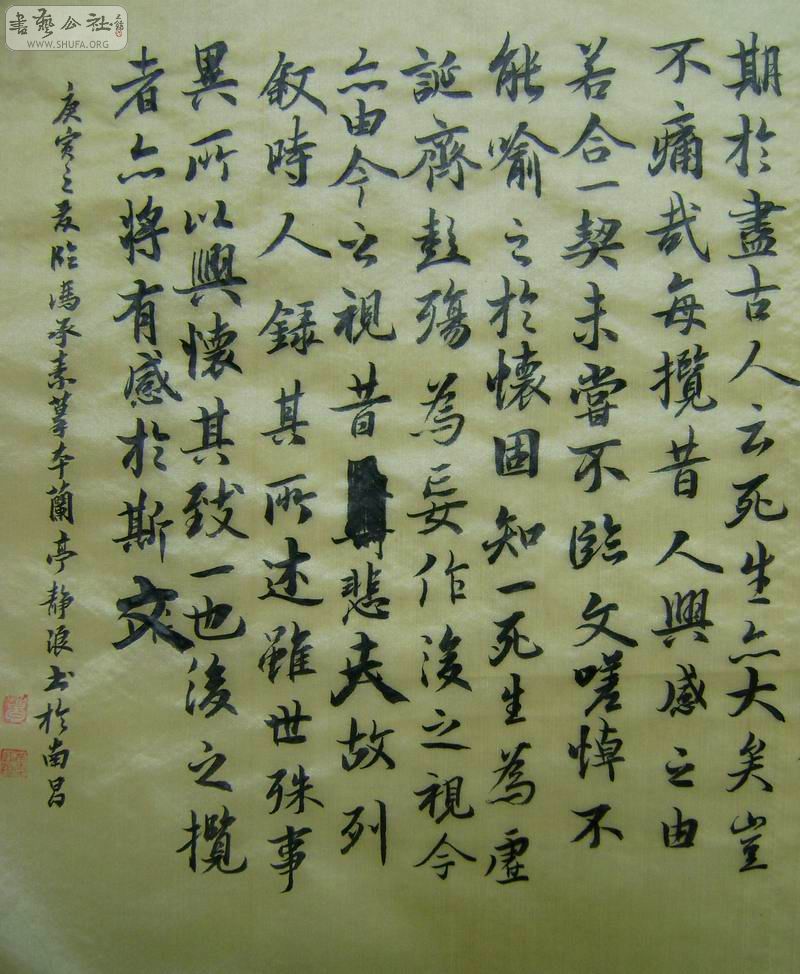 期於盡古人云死生亦大矣豈
不痛哉每攬昔人興感之由
若合一契未嘗不臨文嗟悼不
能喻之於懷固知一死生為虛
誕齊彭殤為妄作後之視今
亦由今之視昔悲夫故列
敘時人錄其所述雖世殊事
異所以興懷其致一也後之攬
者亦將有感於斯文
庚寅之夏臨馮承素摹本蘭亭靜浪書於南昌
書藝公社
WWW.SHUFA.ORG